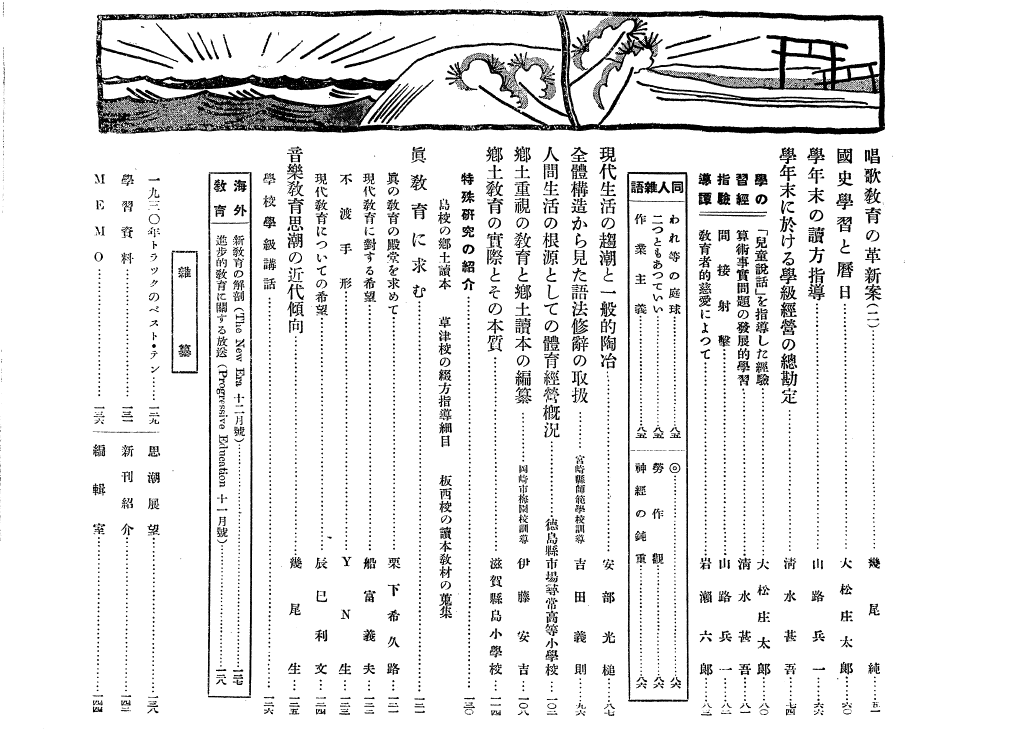 唱歌敎育の革新案(二)……幾尾 純……五一
國史學習と曆日……大松庄太郞……六〇
學年末の讀方指導……山路兵一……六六
學年末に於ける學級經營の總勘定……淸水甚吾……七四
學習指導の經驗譚
「兒童說話」を指導した經驗……大松庄太郞……八〇
算術事實問題の發展的學習……淸水甚吾……八一
間接射擊……山路兵一……八二
敎育者的慈愛によつて……岩瀨六郞……八三
同人雜語
われ等の庭球……八五
二つともあつていい……八五
作業主義……八五
◎……八六
勞作觀……八六
神經の鈍重……八六
現代生活の趨潮と一般的陶冶……安部光槌……八七
全體構造から見た語法修辭の取扱……宮崎縣師範學校訓導 吉田義則……九六
人間生活の根源としての體育經營槪況……德島縣市場尋常高等小學校……一〇二
鄕土重視の敎育と鄕土讀本の編纂……岡崎市梅園校訓導 伊藤安吉……一〇八
鄕土敎育の實際とその本質……滋賀縣島小學校……一一四
特殊硏究の紹介……一三〇
島校の鄕土讀本 草津校の綴方指導細目 板西校の讀本敎材の蒐集
眞敎育に求む……一二一
眞の敎育の殿堂を求めて……栗下希久路……一二一
現代敎育に對する希望……船富義夫……一二二
不渡手形……Y N 生……一二三
現代敎育についての希望……辰巳利文……一二四
音樂敎育思潮の近代傾向……幾尾生……一二五
學校學級講話……一二六
海外敎育
新敎育の解剖(The New Era 十二月號)……一二七
進步的敎育に關する放送(Progressive Education 十一月號)……一二八
雜纂
一九三〇年トラックのベスト・テン……一二九
思潮展望……一三八
學習資料……一三一
新刊紹介……一四三
MEMO……一三六
編輯室……一四四